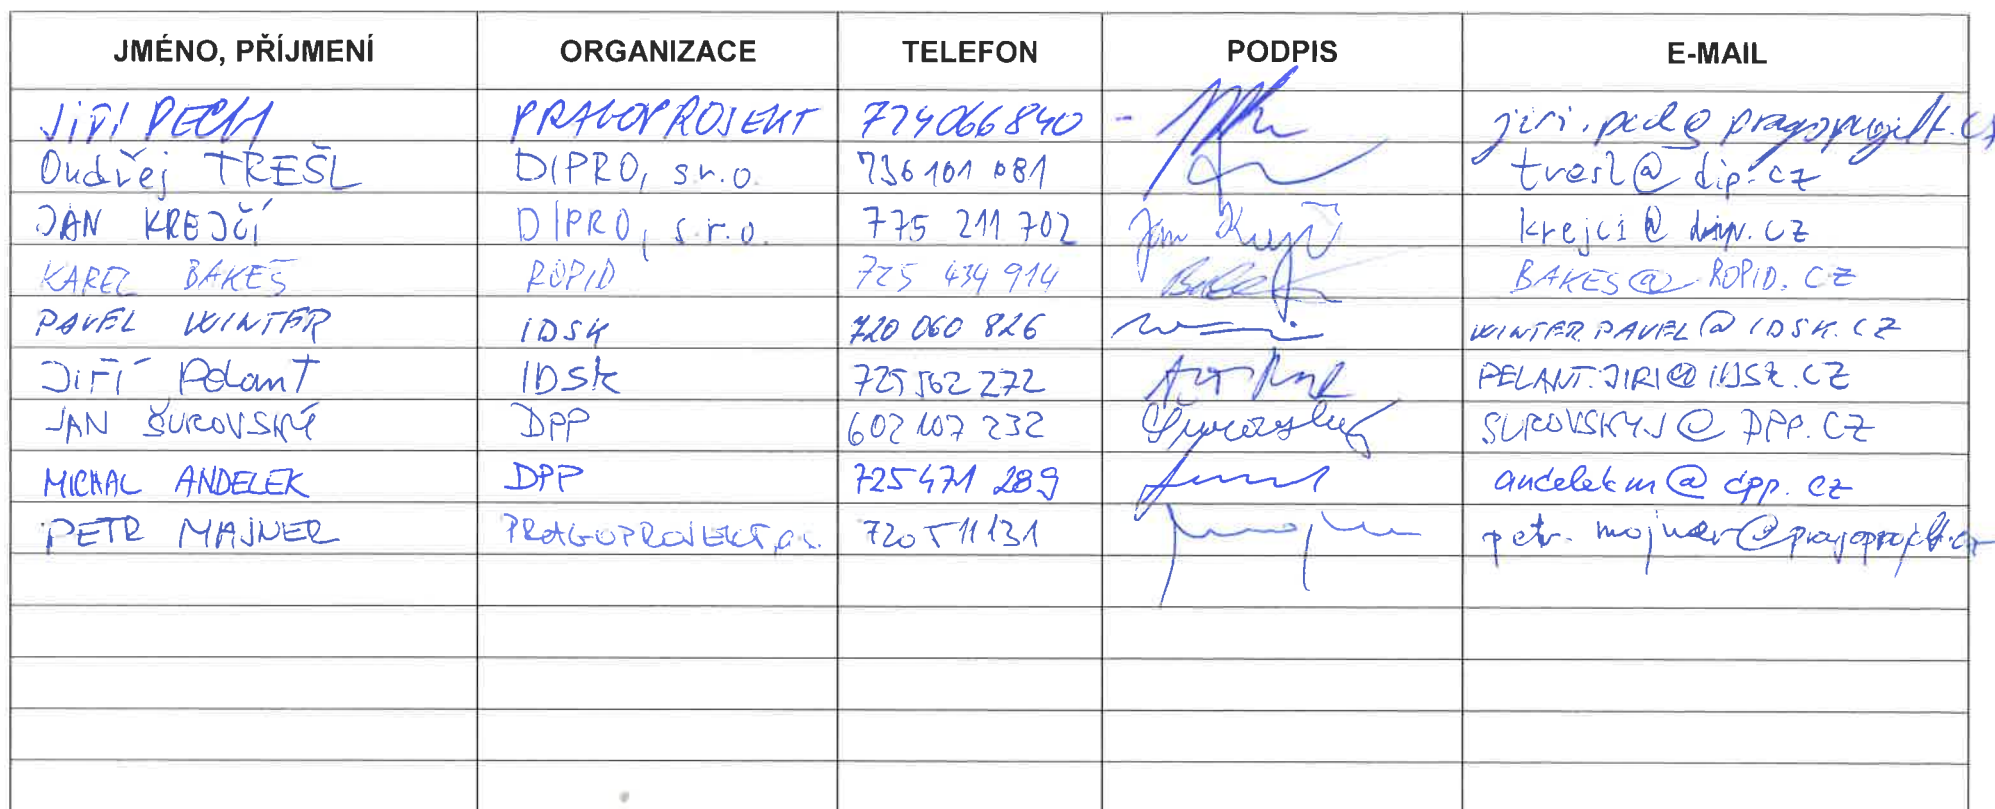 JMÉNO, PŘÍJMENÍ ORGANIZACE TELEFON PODPIS E-MAIL
JIŘÍ PECH PRAGOPROJEKT 724066840 jiri.pech@pragoprojekt.cz
Ondřej TREŠL DIPRO, s.r.o. 736 101 081 tresl@dip.cz
JAN KREJČÍ DIPRO, s.r.o. 775 211 702 Jan Krejčí krejci@dip.cz
KAREL BAKEŠ ROPID 725 434 914 BAKES@ROPID.CZ
PAVEL WINTER IDSK 720 060 826 WINTER.PAVEL@IDSK.CZ
JIŘÍ Pelant IDSK 725 562 272 PELANT.JIRI@IDSK.CZ
JAN ŠUROVSKÝ DPP 602 107 232 SUROVSKYJ@DPP.CZ
MICHAL ANDELEK DPP 725 471 289 andelekm@dpp.cz
PETR MAJNER PRAGOPROJEKT, a.s. 720 511 131 petr.majner@pragoprojekt.cz